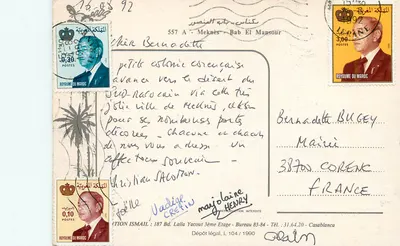 16.03 92
557 A - Meknès - Bab El Mansour
Chère Bernadette
petite colonie corençaise
avance vers le désert du
Sud-marocain via cette très
jolie ville de Meknès,
pour ses nombreuses portes
décorées - Chacune et chacun
de nous vous adresse un
affectueux souvenir -
Christian
Joëlle
Nadège
marjolaine
HENRY
Bernadette BUGEY
Mairie
38700 CORENC
FRANCE
0,30
POSTES
ROYAUME DU MAROC
0,10
POSTES
ROYAUME DU MAROC
3,00
POSTES
ROYAUME DU MAROC
TION ISMAIL : 187 Bd. Lalla Yacout 5ème Etage - Bureau 83-84 - Tél. : 31.64.20 - Casablanca
Dépôt légal, L 104 / 1990